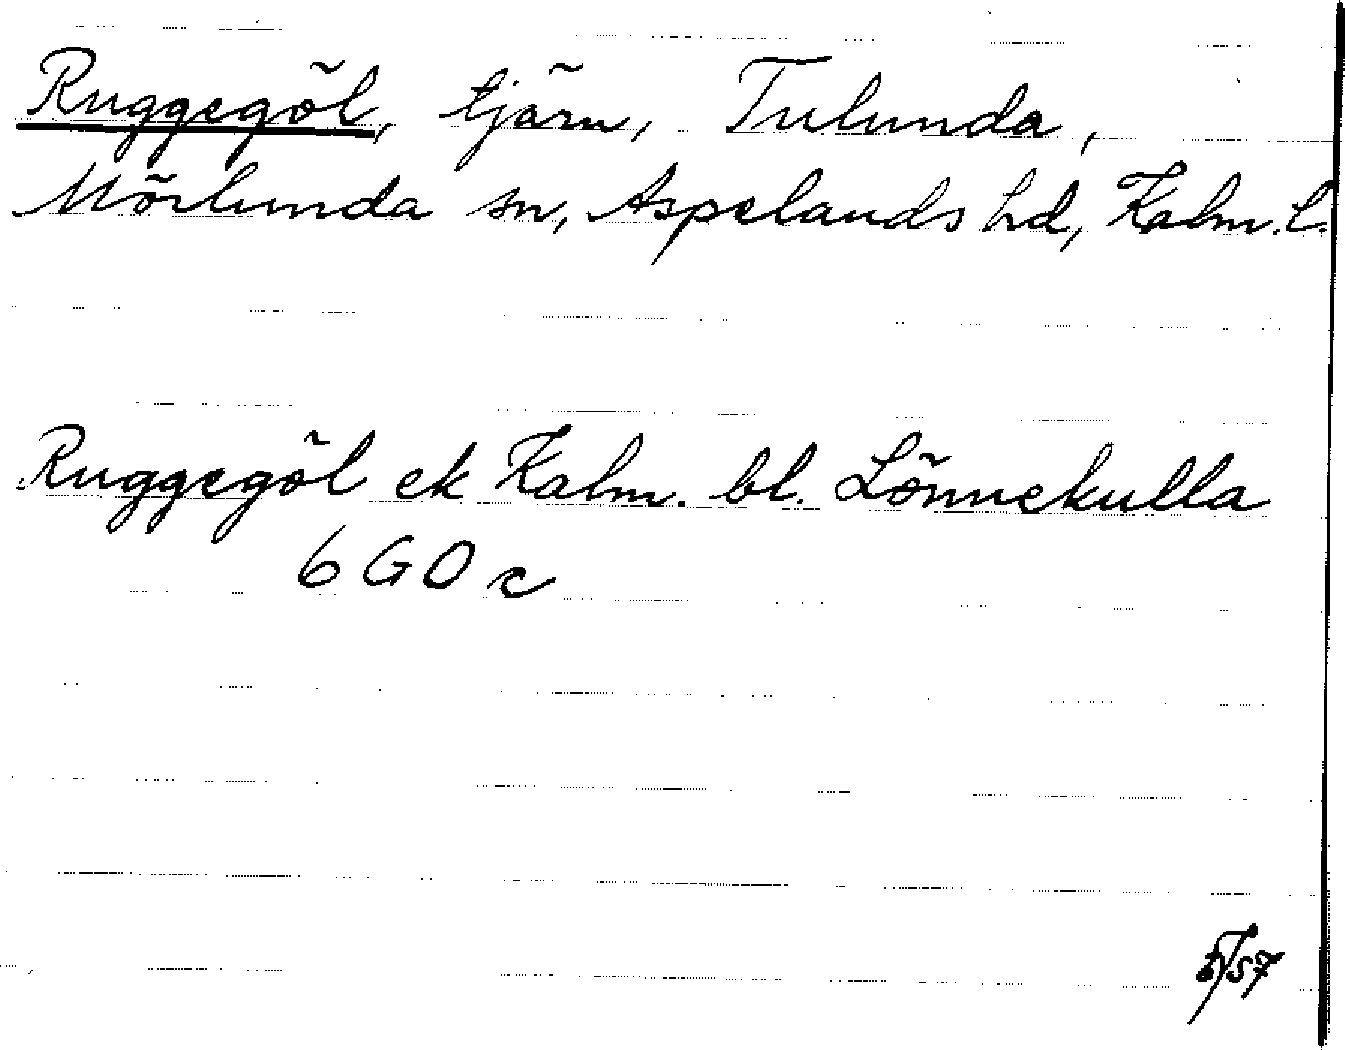 Ruggegöl, tjärn, Tulunda,
Mörlunda sn, Aspelands hd, Kalm. l.
Ruggegöl ek Kalm. bl. Lönnekulla
6 G O c
/57